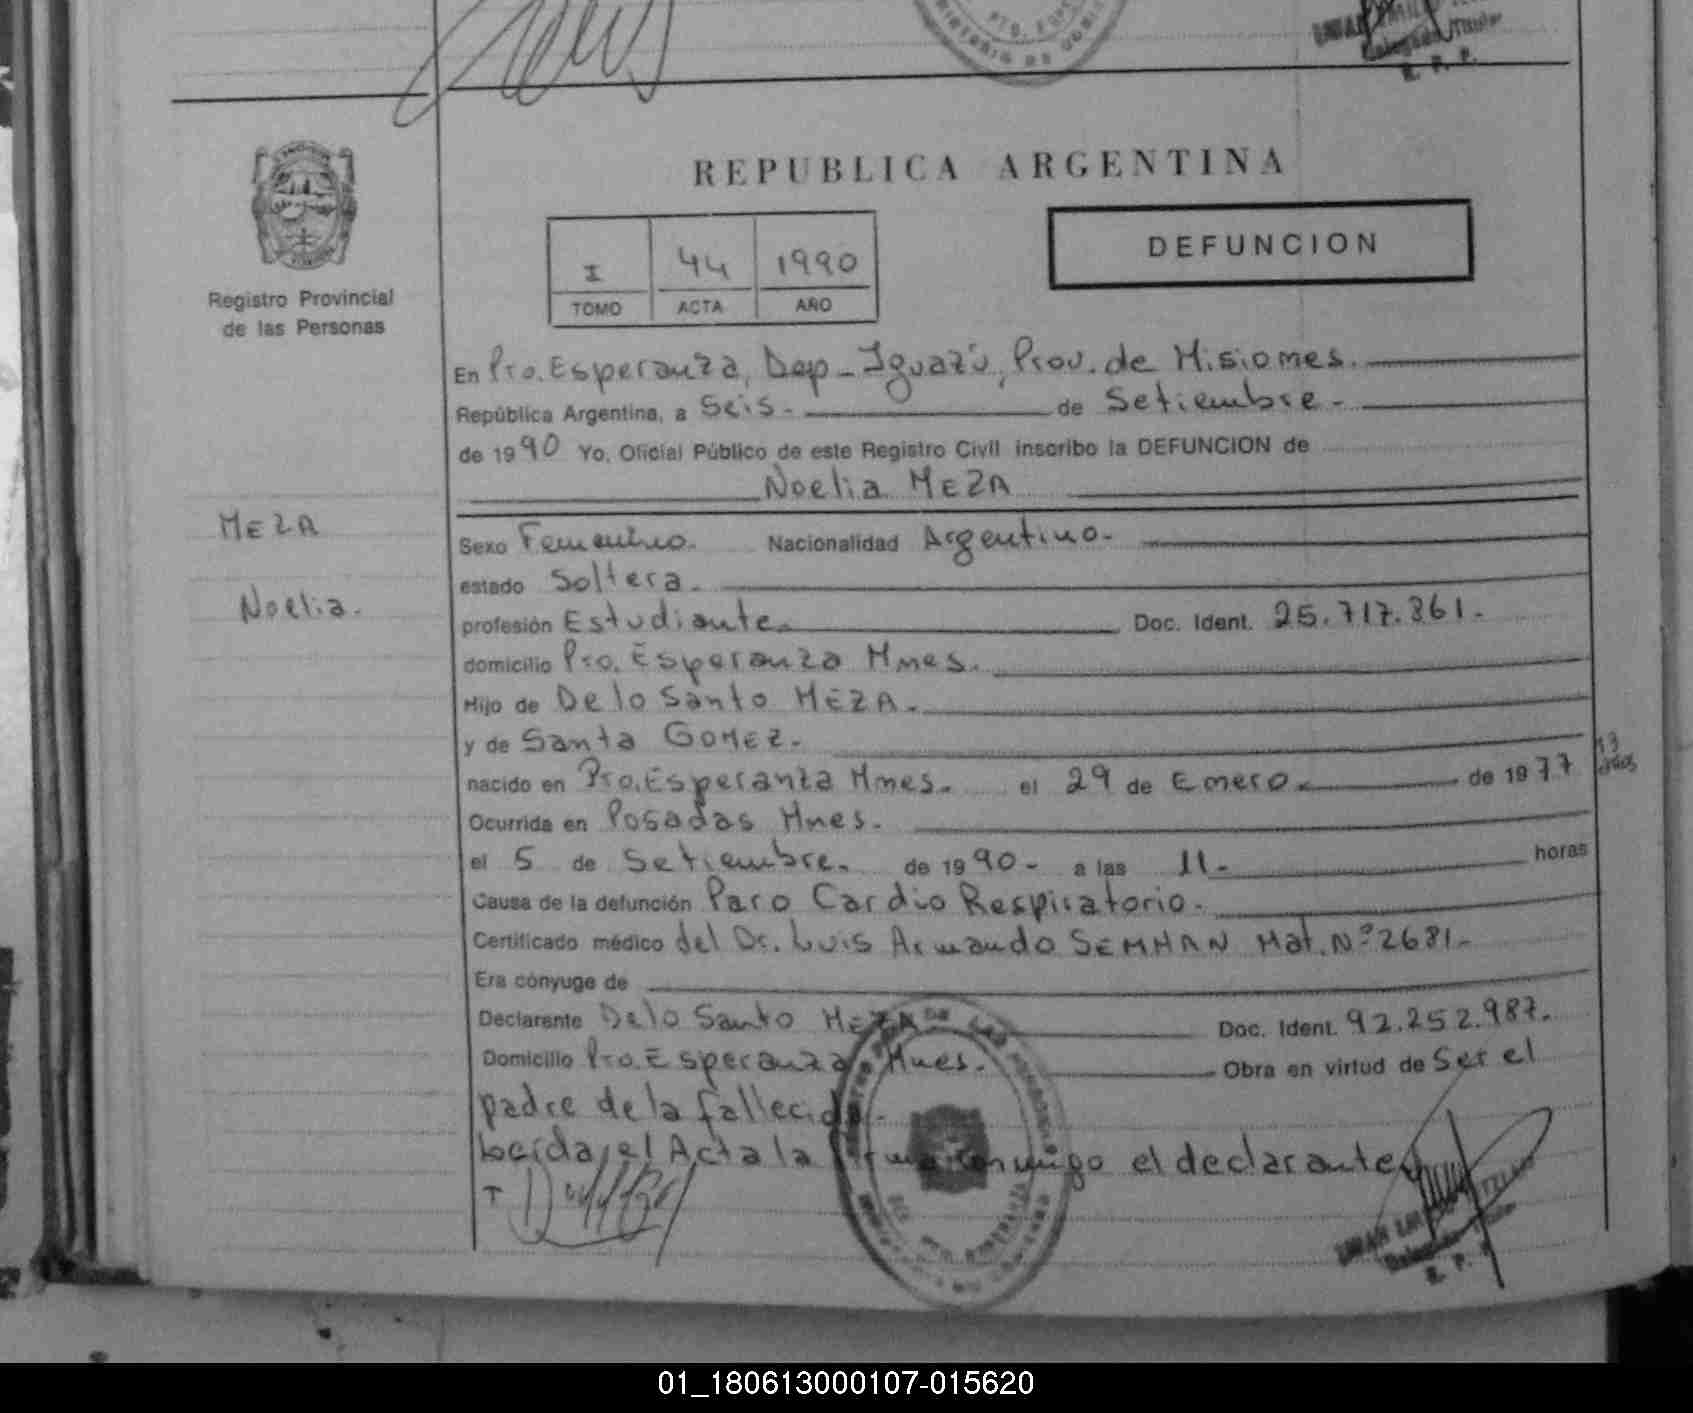 REPUBLICA ARGENTINA
I 44 1990
TOMO ACTA AÑO
DEFUNCION
Registro Provincial
de las Personas
En Pto. Esperanza, Dep_Iguazú, Prov. de Misiones.
República Argentina, a Seis.- de Setiembre.-
de 1990 Yo, Oficial Público de este Registro Civil inscribo la DEFUNCION de
Noelia MEZA
MEZA
Noelia.
Sexo Femenino. Nacionalidad Argentino.-
estado Soltera.-
profesión Estudiante.- Doc. Ident. 25.717.361.-
domicilio Pto. Esperanza Mnes.
Hijo de De lo Santo MEZA.-
y de Santa GOMEZ.-
nacido en Pto. Esperanza Mnes.- el 29 de Enero.- de 1977 13 años
Ocurrida en Posadas Mnes.-
el 5 de Setiembre.- de 1990- a las 11.- horas
Causa de la defunción Paro Cardio Respiratorio.-
Certificado médico del Dr. Luis Armando SEMHAN Mat. Nº 2681.-
Era cónyuge de
Declarante De lo Santo MEZA Doc. Ident. 92.252.987.-
Domicilio Pto. Esperanza Mnes.- Obra en virtud de Ser el
padre de la fallecida.-
Leída el Acta la firma conmigo el declarante
R. P. P.
01_180613000107-015620